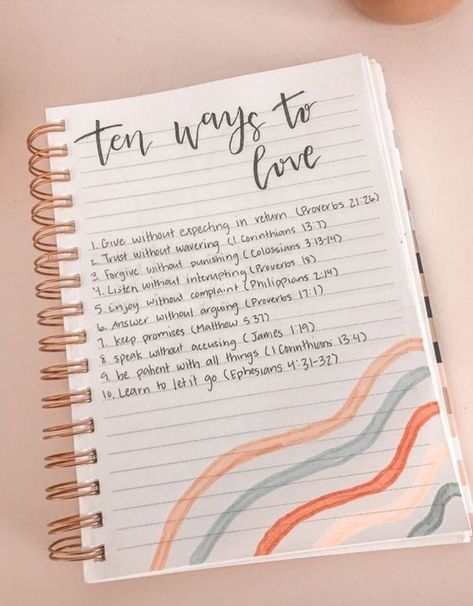 ten ways to
love
1. Give without expecting in return (Proverbs 21:26)
2. Trust without wavering (1 Corinthians 13:7)
3. Forgive without punishing (Colossians 3:13-14)
4. Listen without interupting (Proverbs 18)
5. Enjoy without complaint (Philippians 2:14)
6. Answer without arguing (Proverbs 17:1)
7. keep promises (Matthew 5:37)
8. speak without accusing (James 1:19)
9. be patient with all things (1 Corinthians 13:4)
10. Learn to let it go (Ephesians 4:31-32)